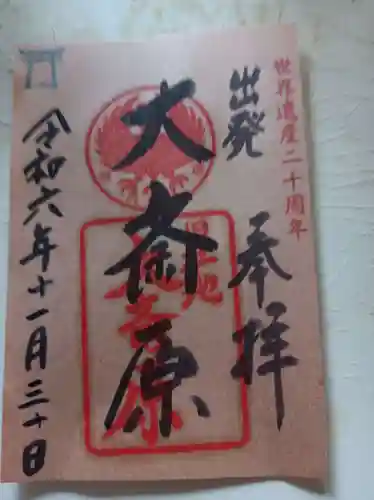 世界遺産二十周年
出発 奉拝
大斎原
旧社地
大斎原
令和六年十一月三十日